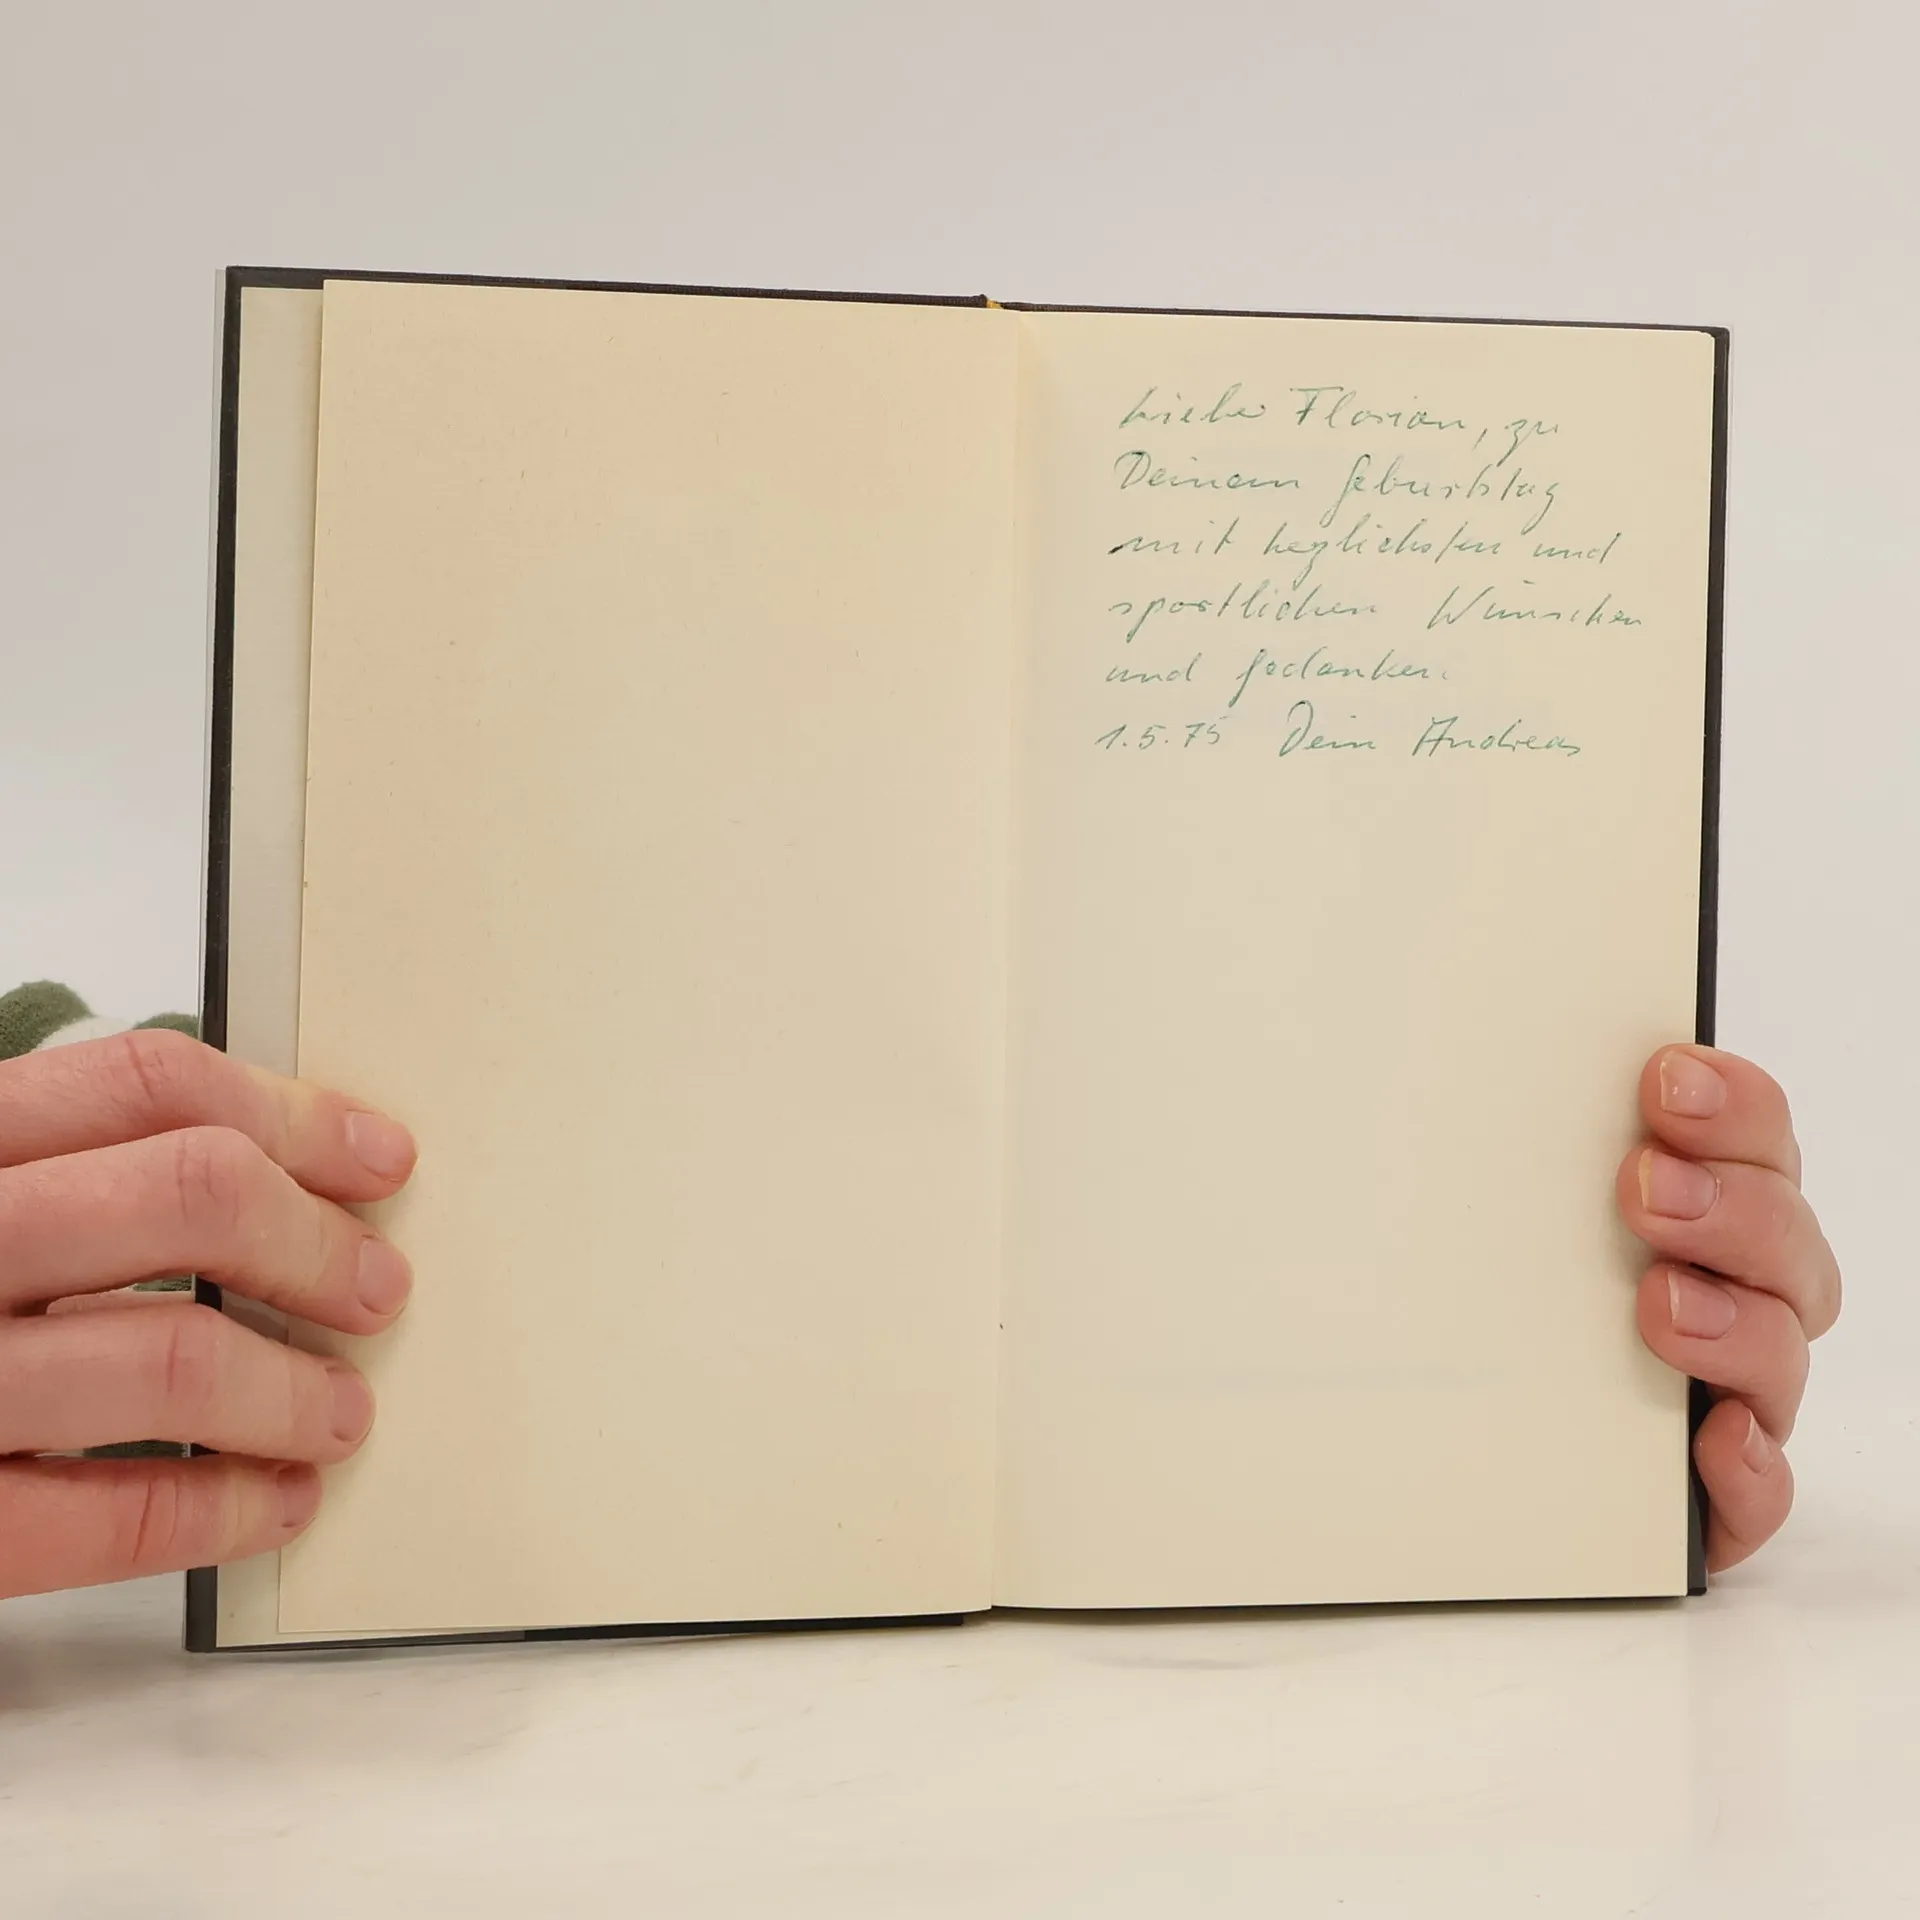 Lieber Florian, zu
Deinem Geburtstag
mit herzlichsten und
sportlichen Wünschen
und Gedanken.
1.5.75 Dein Andreas